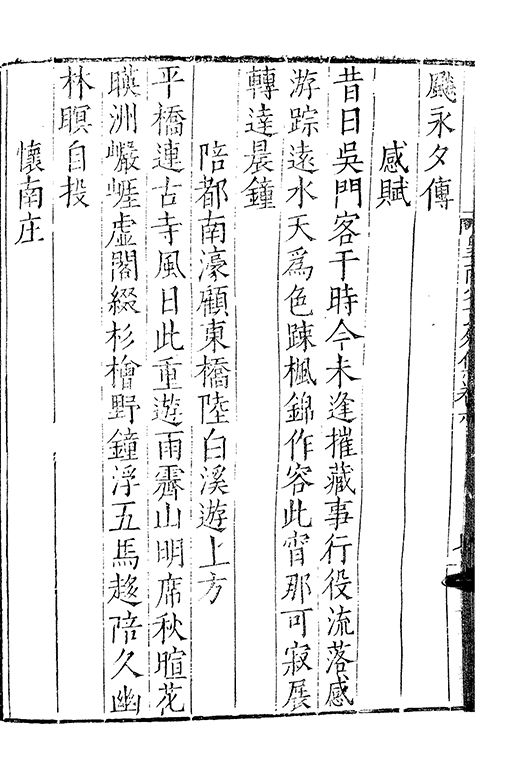 飈永夕傳
感賦
昔日吳門客干時今未逢摧藏事行役流落感
游踪遠水天爲色踈楓錦作容此宵那可寂展
轉達晨鐘
陪都南濠顧東橋陸白溪遊上方
平橋連古寺風日此重遊雨霽山明席秋暄花
暎洲巗𡽱虛閣綴杉檜野鐘浮五馬趍陪久幽
林暝自投
懷南庄